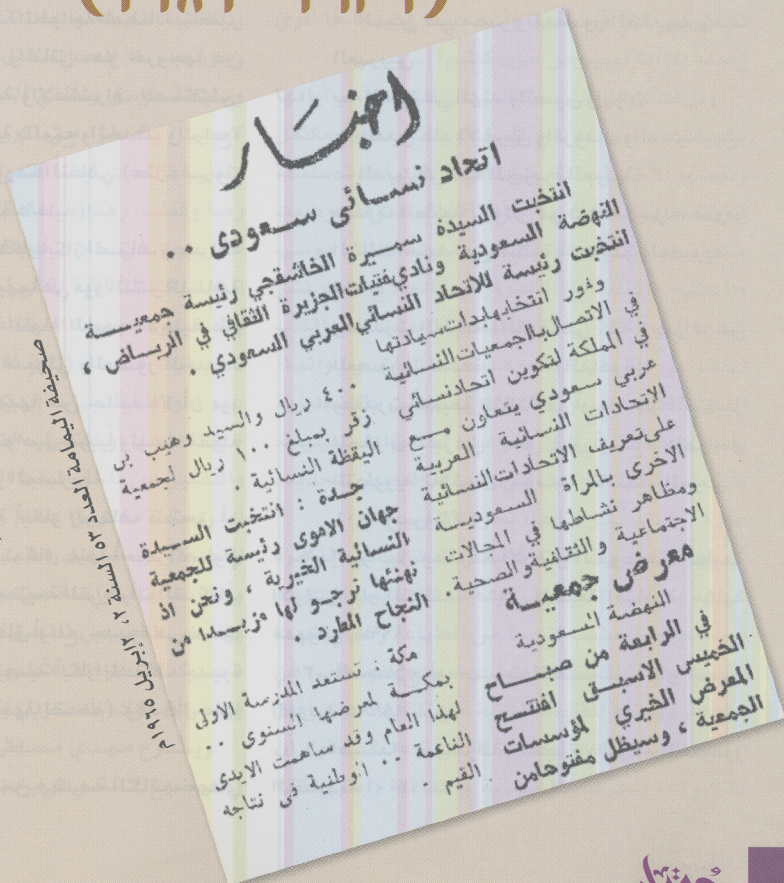 اخبار
اتحاد نسائى سعودى ..
انتخبت السيدة سميرة الخاشقجي رئيسة جمعية
النهضة السعودية ونادي فتيات الجزيرة الثقافي في الرياض ،
انتخبت رئيسة للاتحاد النسائي العربي السعودي
وفور انتخابها بدات سيادتها
في الاتصال بالجمعيات النسائية
في المملكة لتكوين اتحاد نسائي
عربي سعودي يتعاون مع
الاتحادات النسائية العربية
على تعريف الاتحادات النسائية
الاخرى بالمراة السعودية
ومظاهر نشاطها في المجالات
الاجتماعية والثقافية والصحية
معرض جمعية
النهضة السعودية
في الرابعة من صباح
الخميس الاسبق افتتح
المعرض الخيري لمؤسسات
الجمعية ، وسيظل مفتوحا من
٤٠٠ ريال والسيد وهيب بن
زقر بمبلغ ١٠٠ ريال لجمعية
اليقظة النسائية .
جدة : انتخبت السيدة
جهان الاموى رئيسة للجمعية
النسائية الخيرية ، ونحن اذ
نهنئها نرجو لها مزيدا من
النجاح المطرد
مكة : تستعد المدرسة الاولى
بمكة لمعرضها السنوى ..
لهذا العام وقد ساهمت الايدى
الناعمة .. الوطنية فى نتاجه
القيم .
صحيفة اليمامة العدد ٢ السنة ٢، ٢ ابريل ١٩٦٥م